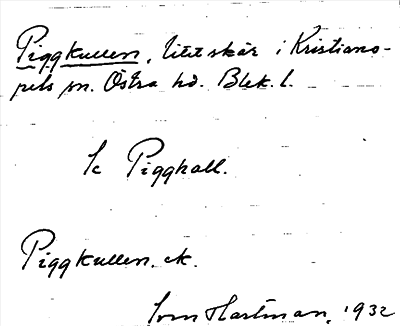 Piggkullen, litet skär i Kristiano-
pels sn. Östra hd. Blek. l.
Se Piggkall.
Piggkullen. ek.
Sven Hartman, 1932